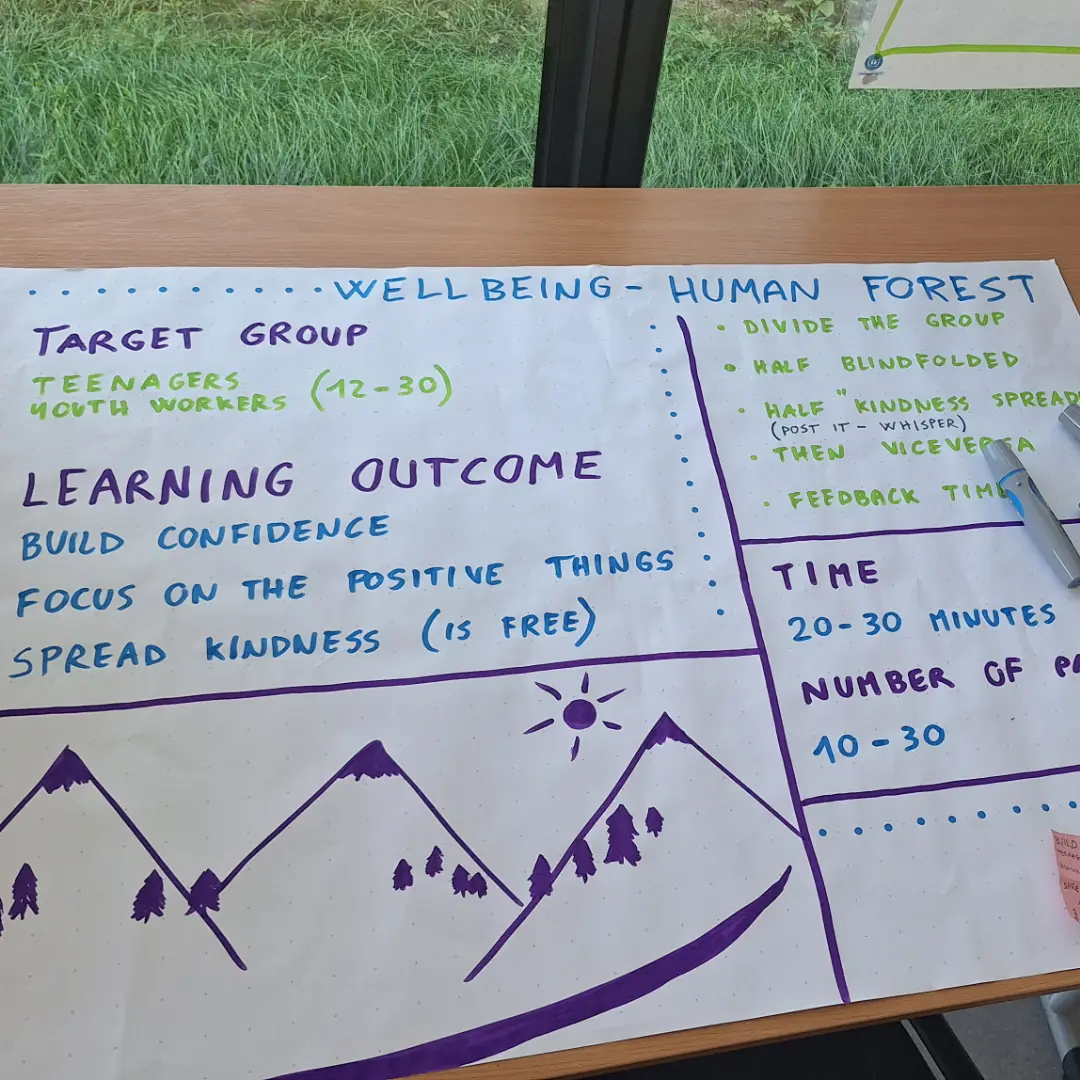 WELLBEING - HUMAN FOREST
TARGET GROUP
TEENAGERS
YOUTH WORKERS (12-30)
LEARNING OUTCOME
BUILD CONFIDENCE
FOCUS ON THE POSITIVE THINGS
SPREAD KINDNESS (IS FREE)
• DIVIDE THE GROUP
• HALF BLINDFOLDED
• HALF "KINDNESS SPREAD
(POST IT - WHISPER)
• THEN VICEVERSA
• FEEDBACK TIME
TIME
20-30 MINUTES
NUMBER OF PA
10-30
BUILD